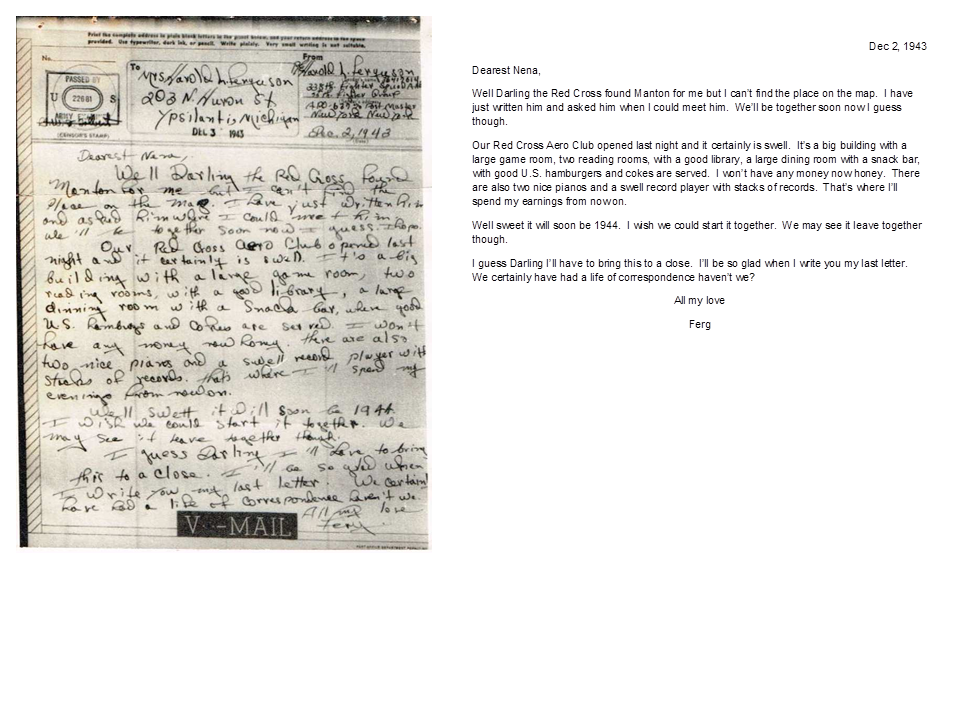 Print the complete address in plain block letters in the panel below, and your return address in the space
provided. Use typewriter, dark ink, or pencil. Write plainly. Very small writing is not suitable.
No.
PASSED BY
U 22681 S
ARMY
(CENSOR'S STAMP)
To
Mrs Harold L. Ferguson
203 N. Huron St
Ypsilanti, Michigan
DEC 3 1943
From
Harold L. Ferguson
APO
New York, New York
Dec. 2, 1943
Dearest Nena,
Well Darling the Red Cross found
Manton for me but I can't find the
place on the map. I have just written him
and asked him where I could meet him
we'll be together soon now I guess. I hope.
Our Red Cross Aero Club opened last
night and it certainly is swell. It's a big
building with a large game room, two
reading rooms, with a good library, a large
dinning room with a Snack bar, where good
U.S. and Cokes are served. I won't
have any money now honey. There are also
two nice pianos and a swell record player with
stacks of records. that's where I'll spend my
evenings from now on.
Well swett it will soon be 1944.
I wish we could start it together. We
may see it leave together though.
I guess Darling I'll have to bring
this to a close. I'll be so glad when
I write you my last letter. We certain
have had a life of correspondence haven't we.
All my love
Ferg
V - MAIL
Dec 2, 1943
Dearest Nena,
Well Darling the Red Cross found Manton for me but I can't find the place on the map. I have
just written him and asked him when I could meet him. We'll be together soon now I guess
though.
Our Red Cross Aero Club opened last night and it certainly is swell. It's a big building with a
large game room, two reading rooms, with a good library, a large dining room with a snack bar,
with good U.S. hamburgers and cokes are served. I won't have any money now honey. There
are also two nice pianos and a swell record player with stacks of records. That's where I'll
spend my earnings from now on.
Well sweet it will soon be 1944. I wish we could start it together. We may see it leave together
though.
I guess Darling I'll have to bring this to a close. I'll be so glad when I write you my last letter.
We certainly have had a life of correspondence haven't we?
All my love
Ferg